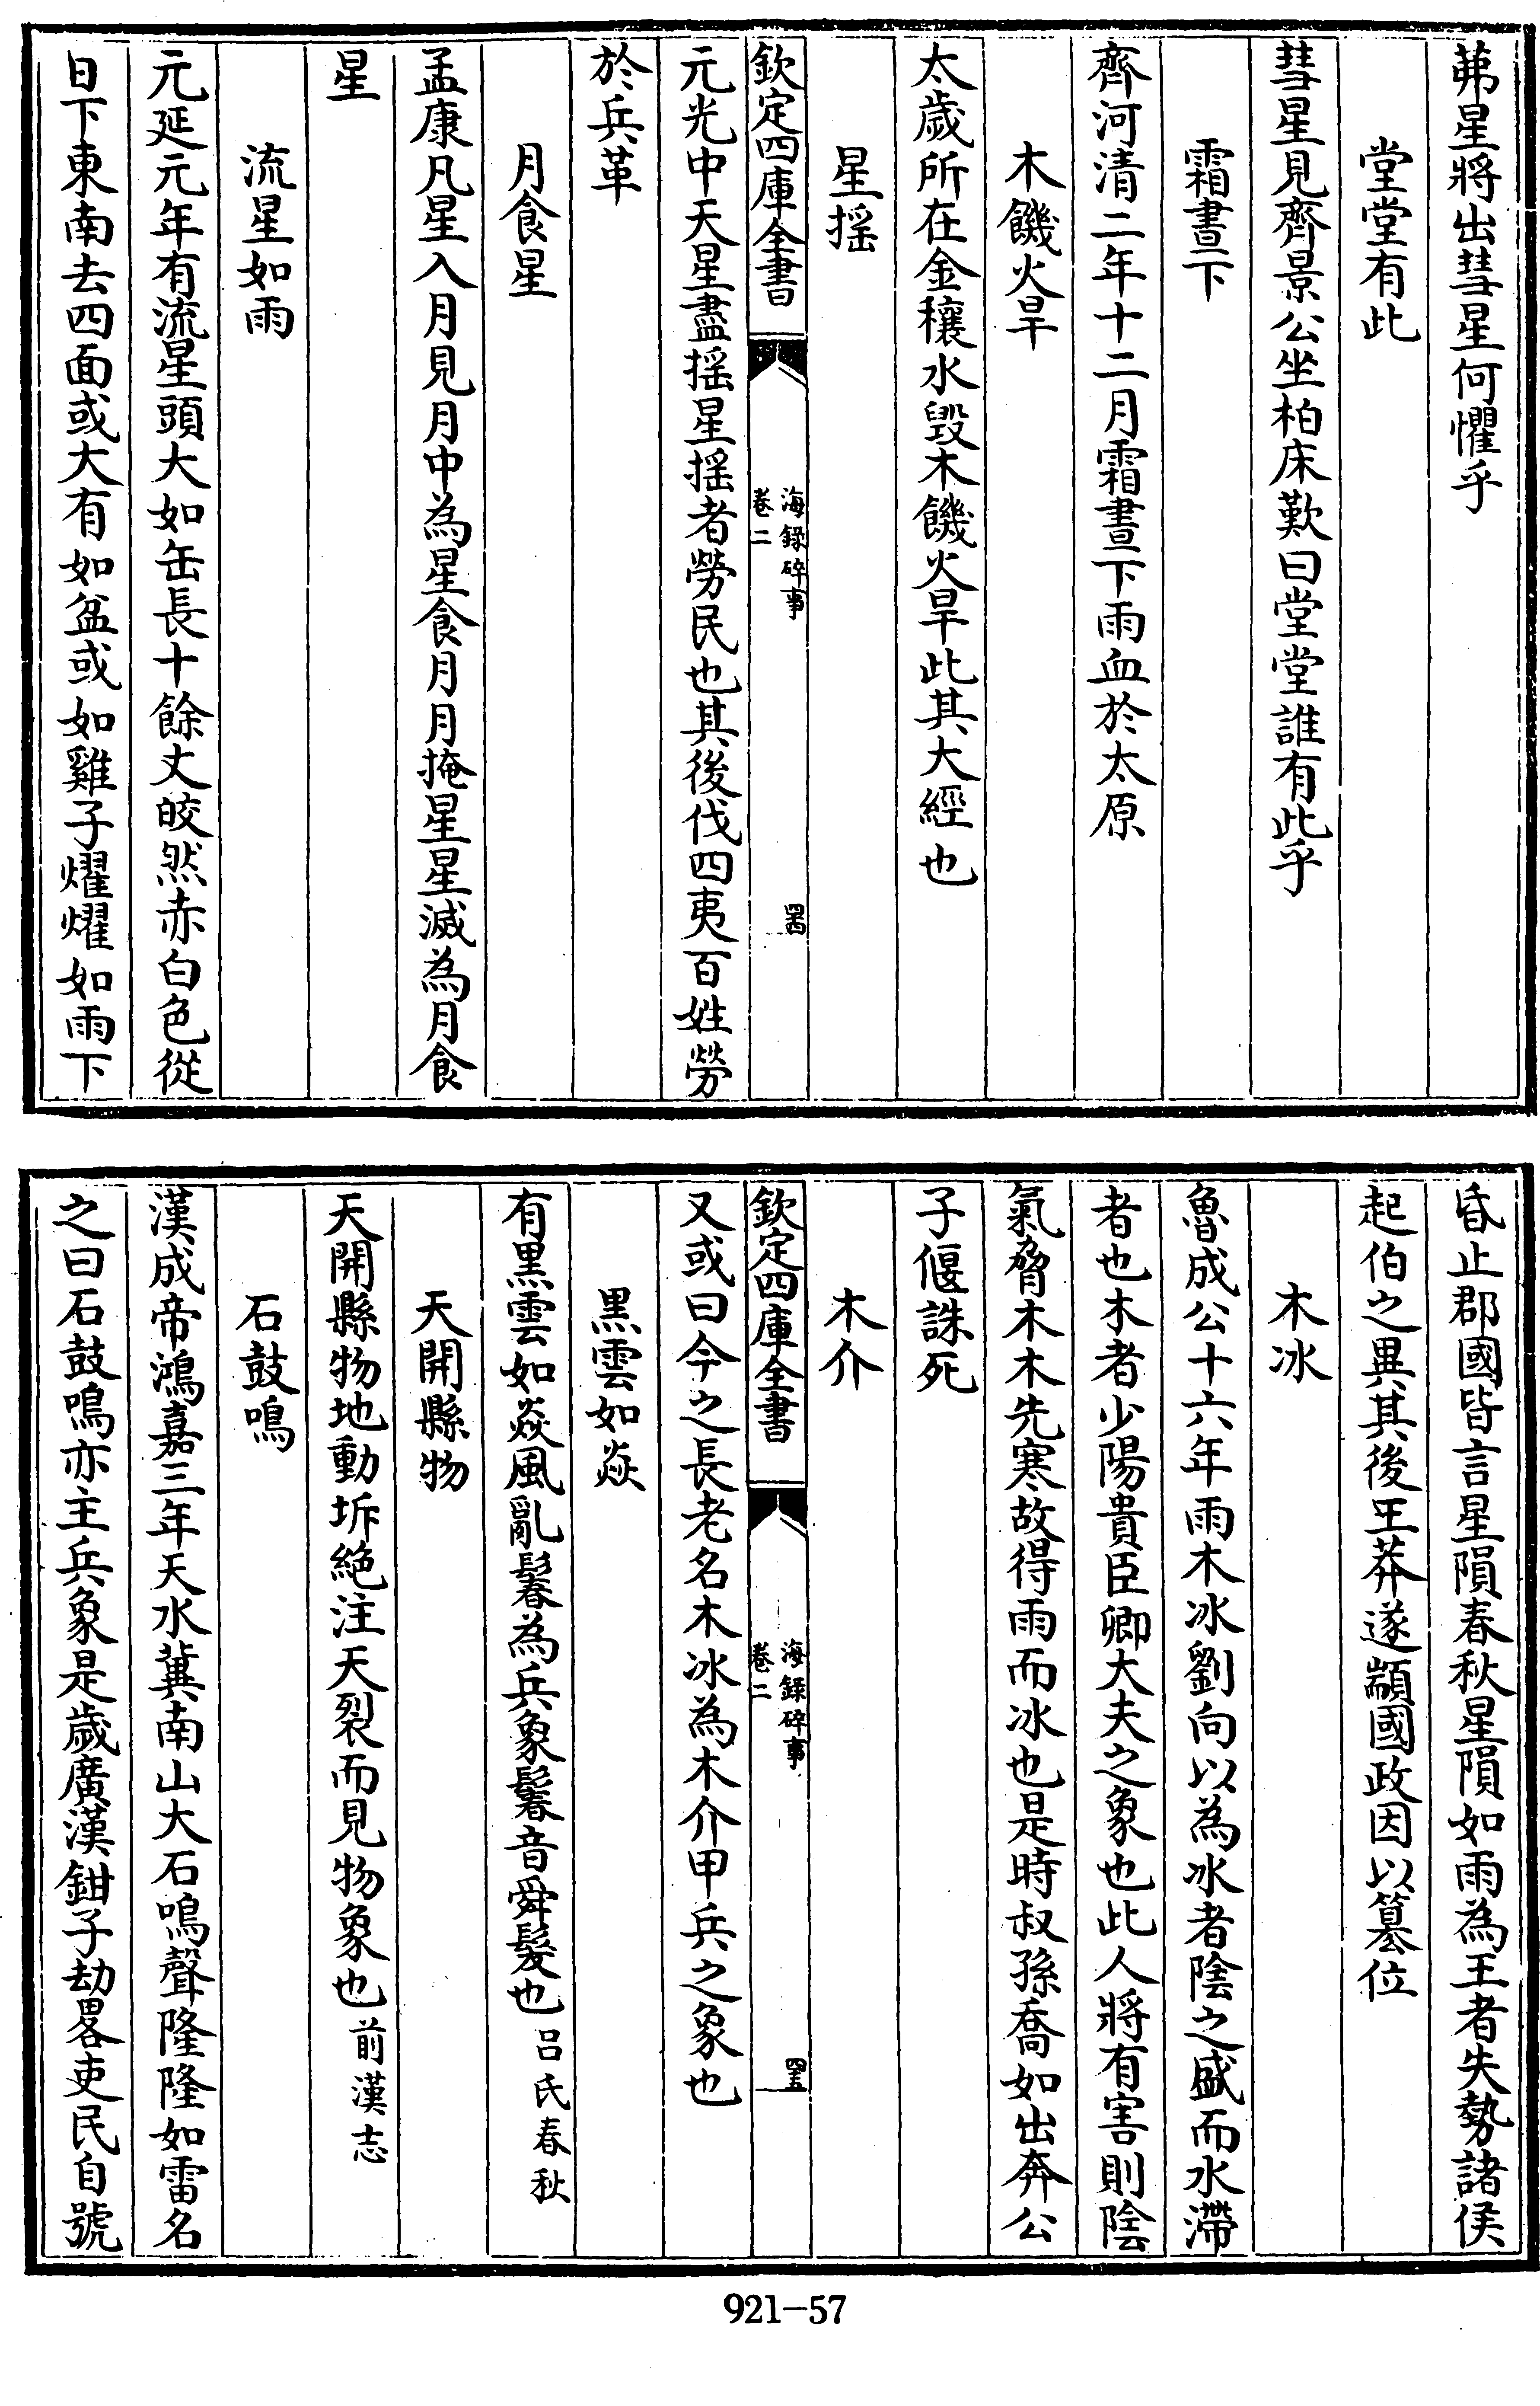 茀星將出彗星何懼乎
堂堂有此
彗星見齊景公坐柏床歎曰堂堂誰有此乎
霜晝下
齊河清二年十二月霜晝下雨血於太原
木饑火旱
太歲所在金穰水毀木饑火旱此其大經也
星揺
欽定四庫全書
海錄碎事
卷二
四四
元光中天星盡揺星揺者勞民也其後伐四夷百姓勞
於兵革
月食星
孟康凡星入月見月中為星食月月掩星星滅為月食
星
流星如雨
元延元年有流星頭大如缶長十餘丈皎然赤白色從
日下東南去四面或大有如盆或如雞子燿燿如雨下
昏止郡國皆言星隕春秋星隕如雨為王者失勢諸侯
起伯之異其後王莽遂顓國政因以簒位
木冰
魯成公十六年雨木冰劉向以為冰者陰之盛而水滯
者也木者少陽貴臣卿大夫之象也此人將有害則陰
氣脅木木先寒故得雨而冰也是時叔孫喬如出奔公
子偃誅死
木介
欽定四庫全書
海錄碎事
卷二
四五
又或曰今之長老名木冰為木介甲兵之象也
黒雲如焱
有黒雲如焱風亂鬊為兵象鬊音舜髮也吕氏春秋
天開縣物
天開縣物地動坼絶注天裂而見物象也前漢志
石鼓鳴
漢成帝鴻嘉三年天水冀南山大石鳴聲隆隆如雷名
之曰石鼓鳴亦主兵象是歲廣漢鉗子劫畧吏民自號
921—57